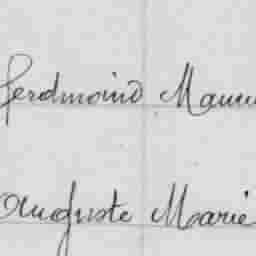 Ferdinand
Auguste Marie